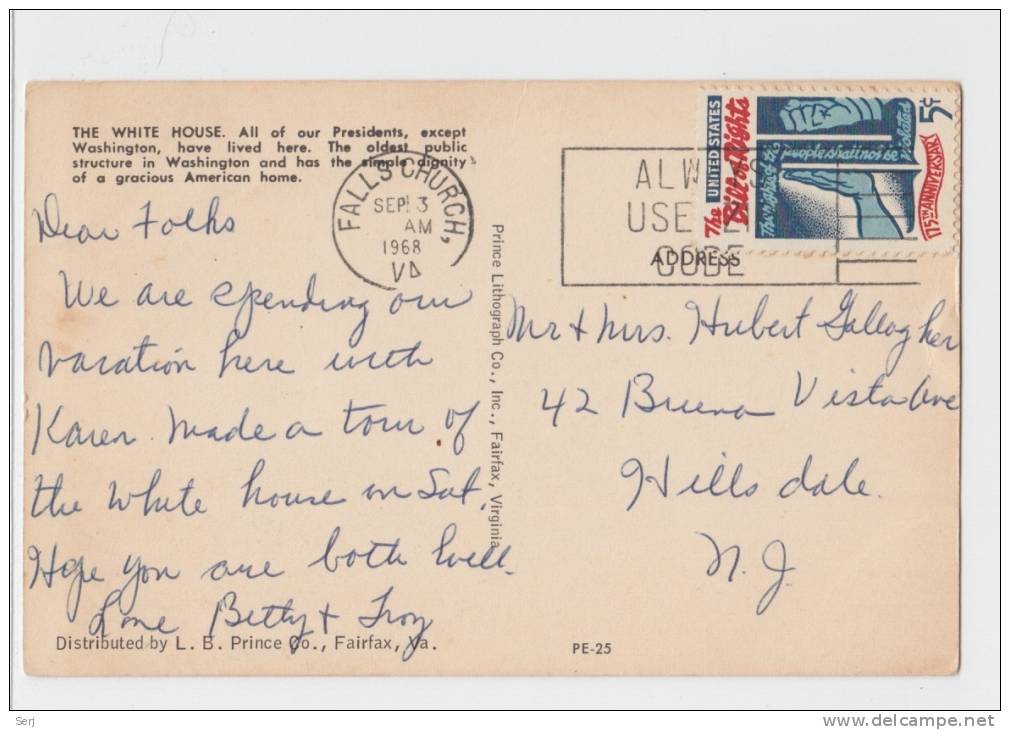 THE WHITE HOUSE. All of our Presidents, except
Washington, have lived here. The oldest public
structure in Washington and has the simple dignity
of a gracious American home.
FALLS CHURCH,
SEP 3
AM
1968
VA
ALW
USE
CODE
The UNITED STATES
Bill of Rights
The rights of the people shall not be violated
175TH ANNIVERSARY
5c
ADDRESS
Dear Folks
We are spending our
vacation here with
Karen. Made a tour of
the White house on Sat.
Hope you are both well.
Love Betty + Troy
Prince Lithograph Co., Inc., Fairfax, Virginia
Mr + Mrs. Hubert Gallagher
42 Buena Vista Ave
Hillsdale.
N.J.
Distributed by L. B. Prince Co., Fairfax, Va.
PE-25
Serj
www.delcampe.net